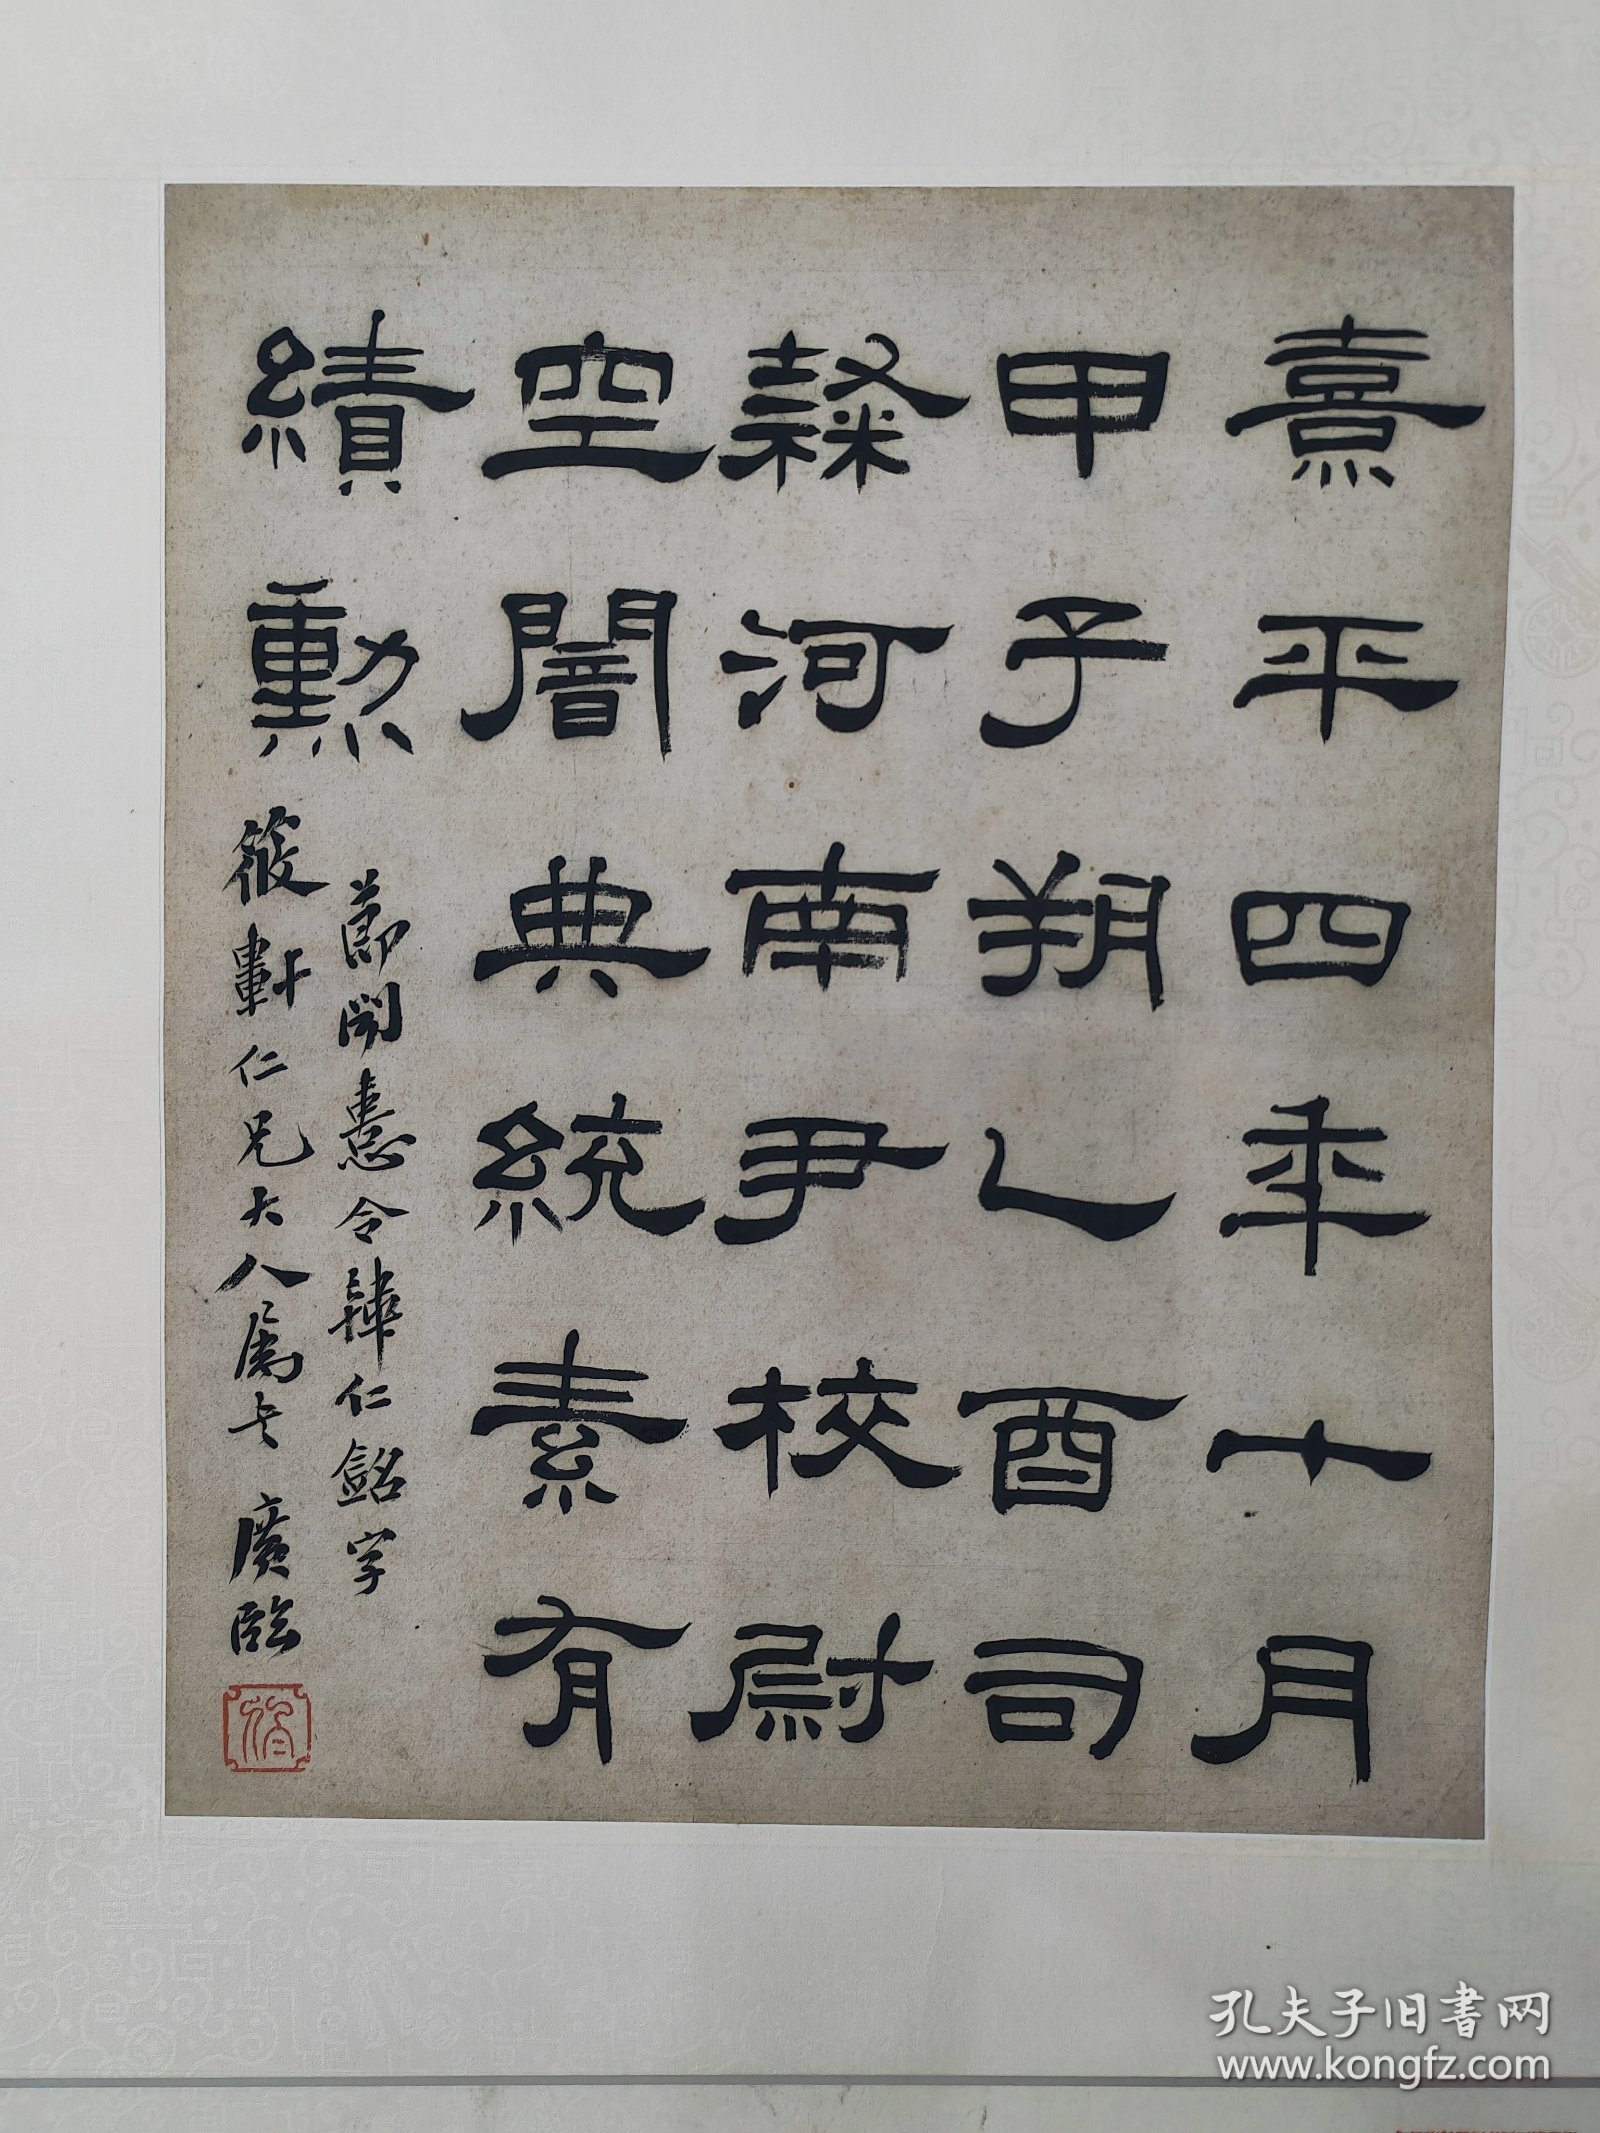 熹平四年十月
甲子朔乙酉司
隸河南尹校尉
空闇典統素有
績勳
節聞憙令韓仁銘字
筱軒仁兄大人屬 廣臨
孔夫子旧书网
www.kongfz.com